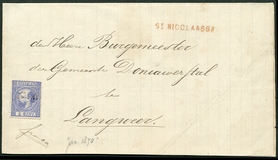 ST. NICOLAASGA
den Heer Burgemeester
der Gemeente Doniawerstal
te
Langweer.
5 CENT